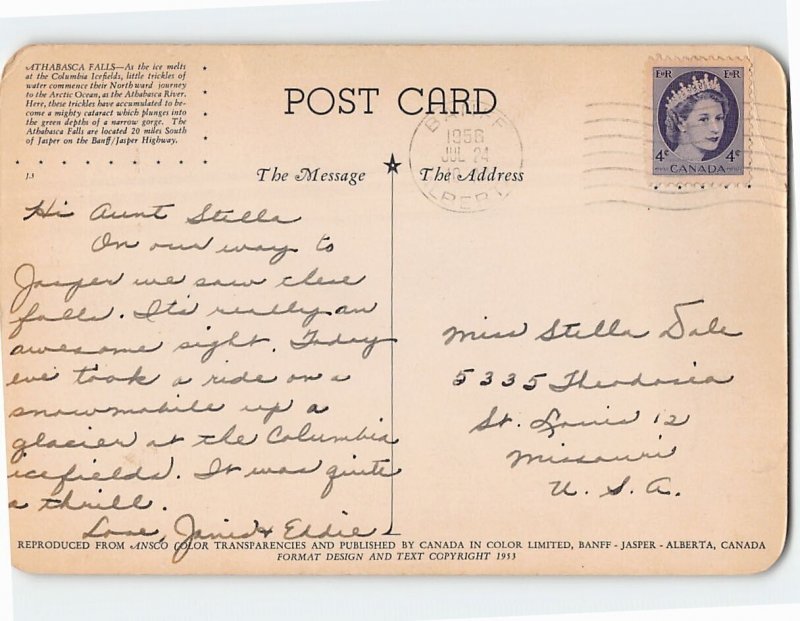 ATHABASCA FALLS—As the ice melts
at the Columbia Icefields, little trickles of
water commence their Northward journey
to the Arctic Ocean, as the Athabasca River.
Here, these trickles have accumulated to be-
come a mighty cataract which plunges into
the green depths of a narrow gorge. The
Athabasca Falls are located 20 miles South
of Jasper on the Banff/Jasper Highway.
J.3
POST CARD
The Message
The Address
BANFF
1958
JUL 24
ALBERTA
E R E R
4¢ 4¢
CANADA
Hi Aunt Stella
On our way to
Jasper we saw these
falls. It's really an
awesome sight. Today
we took a ride on a
snowmobile up a
glacier at the Columbia
icefields. It was quite
a thrill.
Love, Janis & Eddie
Miss Stella Dale
5335 Theodosia
St. Louis 12
Missouri
U. S. A.
REPRODUCED FROM ANSCO COLOR TRANSPARENCIES AND PUBLISHED BY CANADA IN COLOR LIMITED, BANFF - JASPER - ALBERTA, CANADA
FORMAT DESIGN AND TEXT COPYRIGHT 1953